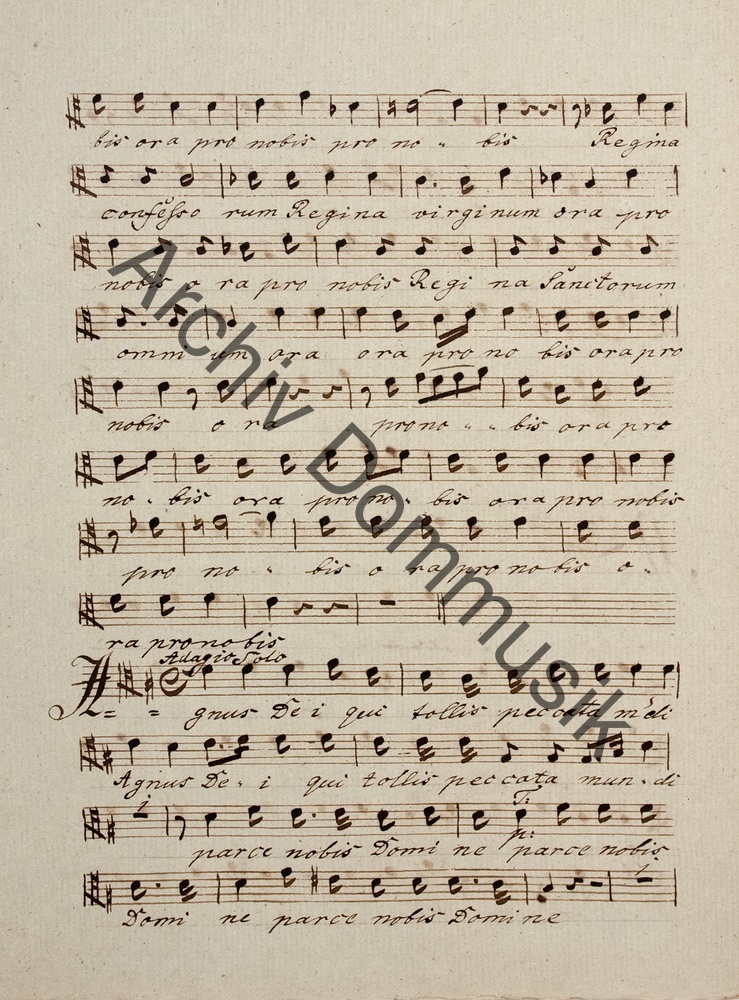 bis ora pro nobis pro no - bis Regina
confesso rum Regina virginum ora pro
nobis o ra pro nobis Regi na Sanctorum
omni um ora ora pro no bis ora pro
nobis o ra pro no - - bis ora pro
no - bis ora pro no - bis ora pro nobis
pro no - bis o ra pro no bis o -
ra pro no bis
Adagio Solo
A = = gnus De i qui tollis peccata mūdi
Agnus De - i qui tollis peccata mun - di
1 T:
p:
parce nobis Domi ne parce nobis
1
Domi ne parce nobis Domi ne
Archiv Dommusik